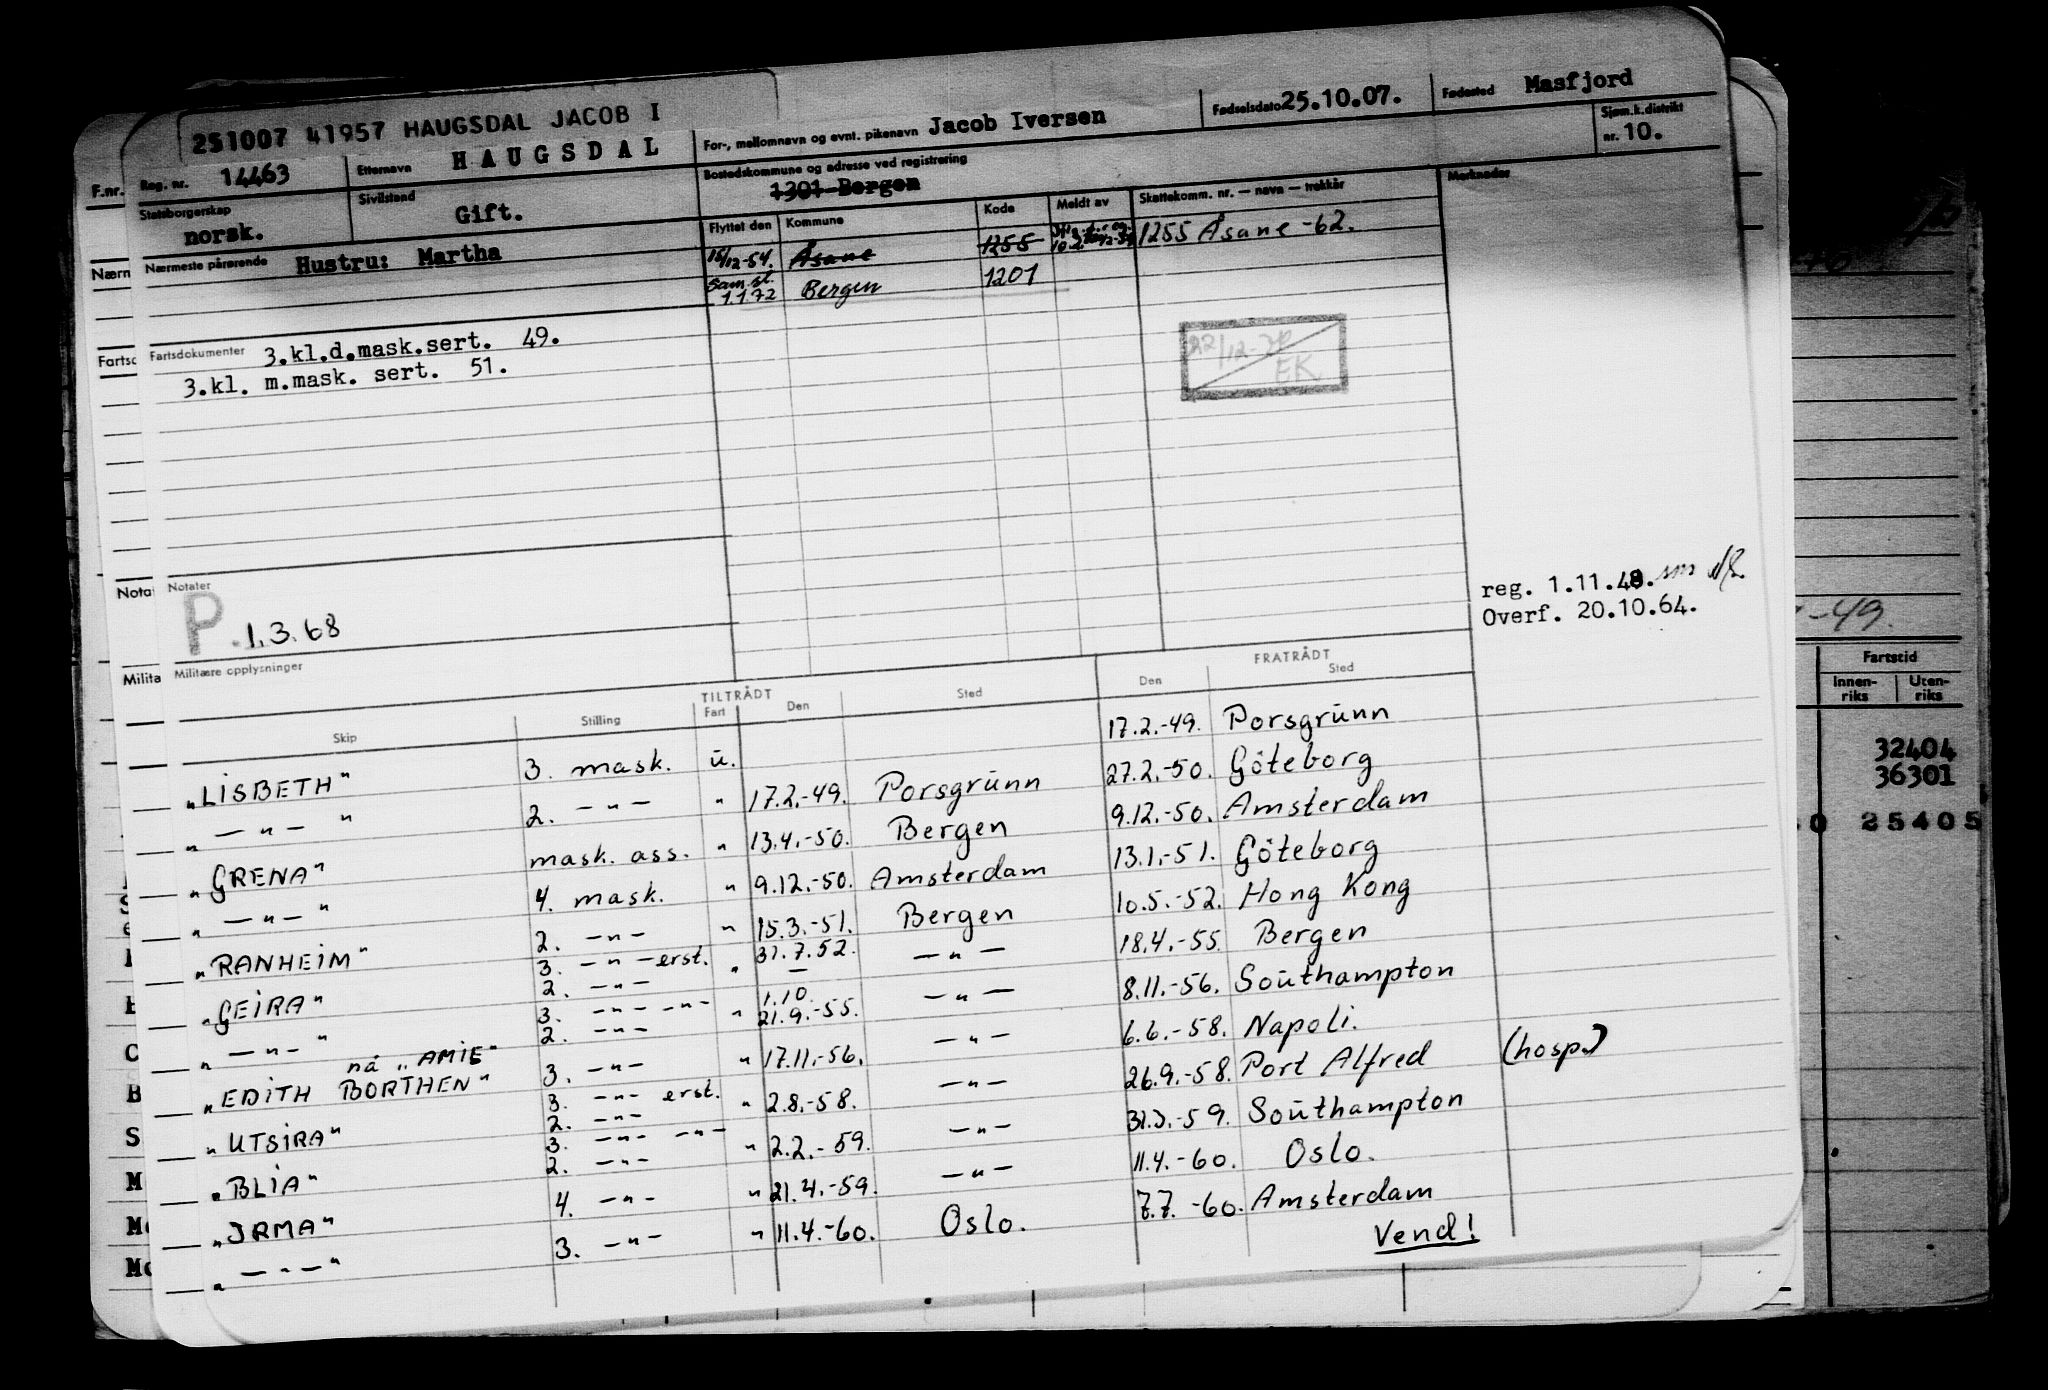 251007 41957 HAUGSDAL JACOB I
Reg. nr. 14463
Etternavn HAUGSDAL
For-, mellomnavn og evnt. pikenavn Jacob Iversen
Fødselsdato 25.10.07.
Fødested Masfjord
Statsborgerskap norsk.
Sivilstand Gift.
Bostedskommune og adresse ved registrering
1301 Bergen
Sjøm.k.distrikt
nr. 10.
Nærmeste pårørende Hustru: Martha
Flyttet den Kommune Kode Meldt av Skattekomm. nr. — navn — trekkår Merknader
15/12-54. Åsane 1255 1255 Åsane -62.
Sam.sl.
1.1.72 Bergen 1201
Fartsdokumenter 3.kl.d.mask.sert. 49.
3.kl. m.mask. sert. 51.
22/12-70
EK
Notater
P 1.3.68
reg. 1.11.48.
Overf. 20.10.64.
Militære opplysninger
TILTRÅDT FRATRÅDT
Skip Stilling Fart Den Sted Den Sted
"LISBETH" 3. mask. u. 17.2.-49. Porsgrunn
" — " — " 2. — " — " 17.2.-49. Porsgrunn 27.2.-50. Göteborg
"GRENA" mask. ass. " 13.4.-50. Bergen 9.12.-50. Amsterdam
" — " — " 4. mask. " 9.12.-50. Amsterdam 13.1.-51. Göteborg
"RANHEIM" 2. — " — " 15.3.-51. Bergen 10.5.-52. Hong Kong
"GEIRA" 3. — " — erst. " 31.7.52. — " — 18.4.-55. Bergen
2. — " — —
" — " — " 3. — " — — " — " 1.10. 21.9.-55. — " — 8.11.-56. Southampton
2. — " —
nå "AMIE"
"EDITH BORTHEN" 3. — " — " 17.11.-56. — " — 6.6.-58. Napoli.
"UTSIRA" 3. — " — erst. " 2.8.-58. — " — 26.9.-58. Port Alfred (hosp.)
2. — " —
"BLIA" 3. — " — — " — " 2.2.-59. — " — 31.3.-59. Southampton
2. — " —
"IRMA" 4. — " — " 21.4.-59. — " — 11.4.-60. Oslo.
" — " — " 3. — " — " 11.4.-60. Oslo. 7.7.-60. Amsterdam
Vend!
F.nr.
Nærn
Fartsd
Notat
Milita
-49.
Fartstid
Innen-
riks
Uten-
riks
32404
36301
25405